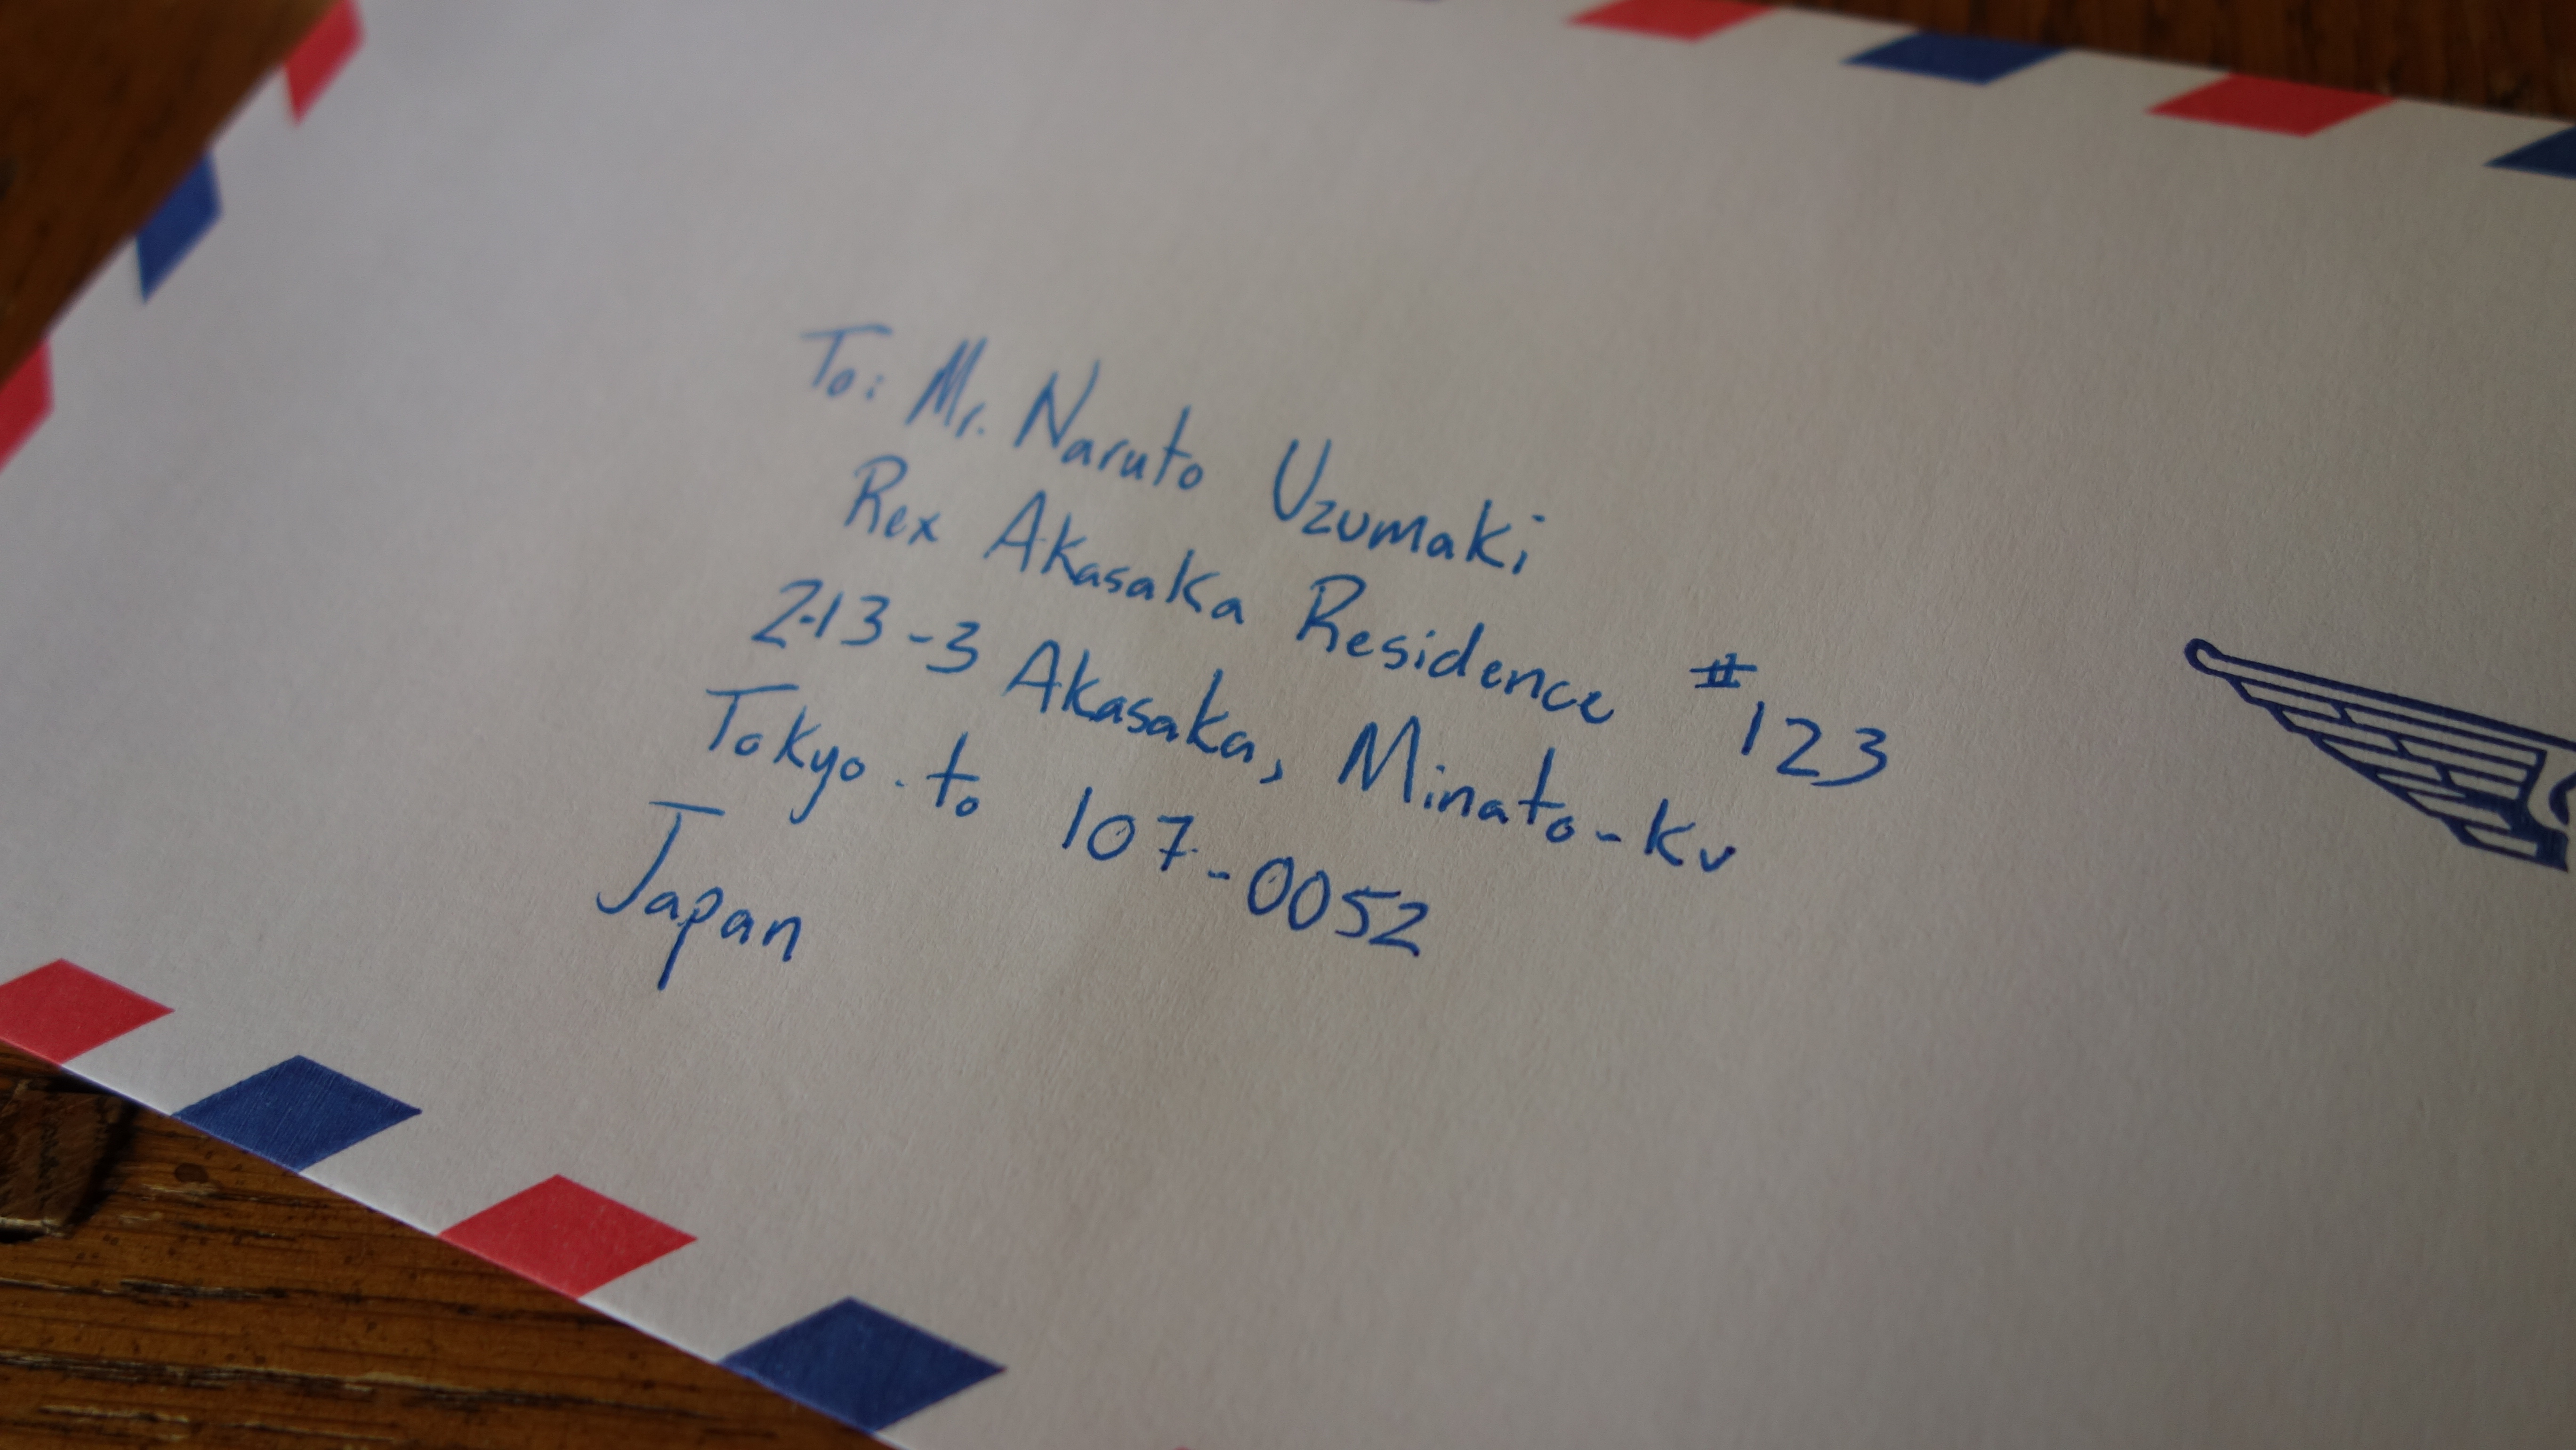 To: Mr. Naruto Uzumaki
Rex Akasaka Residence #123
2-13-3 Akasaka, Minato-Ku
Tokyo-to 107-0052
Japan